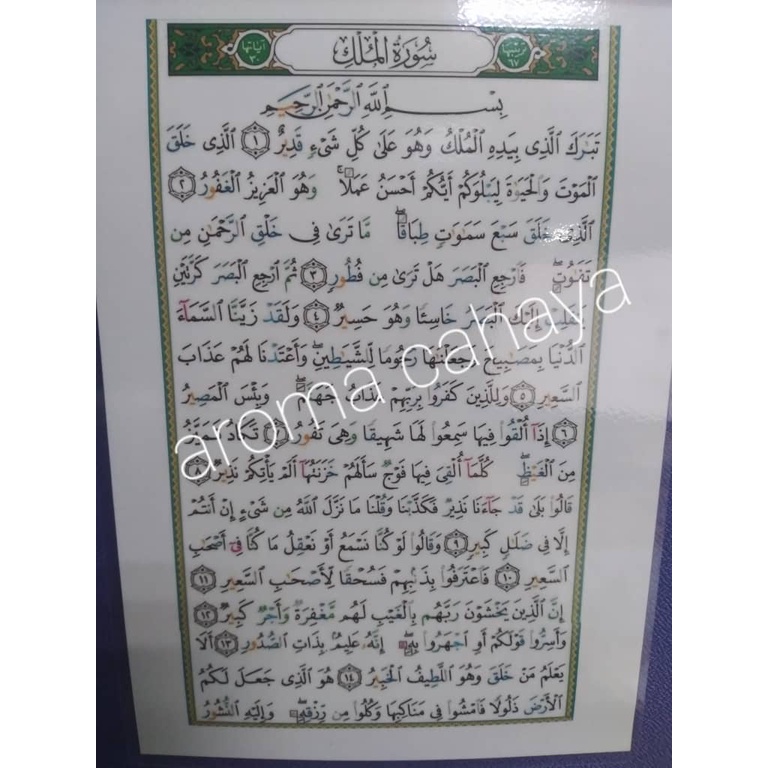 آياتها ٣٠ سُورَةُ الْمُلْكِ ترتيبها ٦٧
بِسْمِ اللَّهِ الرَّحْمَٰنِ الرَّحِيمِ
تَبَارَكَ الَّذِي بِيَدِهِ الْمُلْكُ وَهُوَ عَلَىٰ كُلِّ شَيْءٍ قَدِيرٌ ١ الَّذِي خَلَقَ
الْمَوْتَ وَالْحَيَاةَ لِيَبْلُوَكُمْ أَيُّكُمْ أَحْسَنُ عَمَلًا وَهُوَ الْعَزِيزُ الْغَفُورُ ٢
الَّذِي خَلَقَ سَبْعَ سَمَاوَاتٍ طِبَاقًا مَّا تَرَىٰ فِي خَلْقِ الرَّحْمَٰنِ مِن
تَفَاوُتٍ فَارْجِعِ الْبَصَرَ هَلْ تَرَىٰ مِن فُطُورٍ ٣ ثُمَّ ارْجِعِ الْبَصَرَ كَرَّتَيْنِ
يَنقَلِبْ إِلَيْكَ الْبَصَرُ خَاسِئًا وَهُوَ حَسِيرٌ ٤ وَلَقَدْ زَيَّنَّا السَّمَاءَ
الدُّنْيَا بِمَصَابِيحَ وَجَعَلْنَاهَا رُجُومًا لِّلشَّيَاطِينِ وَأَعْتَدْنَا لَهُمْ عَذَابَ
السَّعِيرِ ٥ وَلِلَّذِينَ كَفَرُوا بِرَبِّهِمْ عَذَابُ جَهَنَّمَ وَبِئْسَ الْمَصِيرُ
٦ إِذَا أُلْقُوا فِيهَا سَمِعُوا لَهَا شَهِيقًا وَهِيَ تَفُورُ ٧ تَكَادُ تَمَيَّزُ
مِنَ الْغَيْظِ كُلَّمَا أُلْقِيَ فِيهَا فَوْجٌ سَأَلَهُمْ خَزَنَتُهَا أَلَمْ يَأْتِكُمْ نَذِيرٌ ٨
قَالُوا بَلَىٰ قَدْ جَاءَنَا نَذِيرٌ فَكَذَّبْنَا وَقُلْنَا مَا نَزَّلَ اللَّهُ مِن شَيْءٍ إِنْ أَنتُمْ
إِلَّا فِي ضَلَالٍ كَبِيرٍ ٩ وَقَالُوا لَوْ كُنَّا نَسْمَعُ أَوْ نَعْقِلُ مَا كُنَّا فِي أَصْحَابِ
السَّعِيرِ ١٠ فَاعْتَرَفُوا بِذَنبِهِمْ فَسُحْقًا لِّأَصْحَابِ السَّعِيرِ ١١
إِنَّ الَّذِينَ يَخْشَوْنَ رَبَّهُم بِالْغَيْبِ لَهُم مَّغْفِرَةٌ وَأَجْرٌ كَبِيرٌ ١٢
وَأَسِرُّوا قَوْلَكُمْ أَوِ اجْهَرُوا بِهِ إِنَّهُ عَلِيمٌ بِذَاتِ الصُّدُورِ ١٣ أَلَا
يَعْلَمُ مَنْ خَلَقَ وَهُوَ اللَّطِيفُ الْخَبِيرُ ١٤ هُوَ الَّذِي جَعَلَ لَكُمُ
الْأَرْضَ ذَلُولًا فَامْشُوا فِي مَنَاكِبِهَا وَكُلُوا مِن رِّزْقِهِ وَإِلَيْهِ النُّشُورُ
aroma cahaya